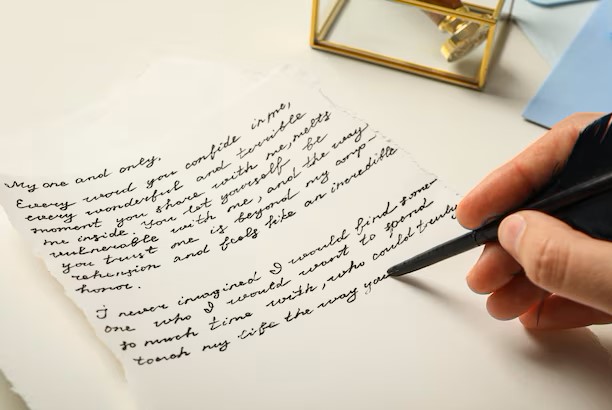 My one and only.
Every word you confide in me,
every wonderful and terrible
moment you share with me, melts
me inside. You let yourself be
vulnerable with me, and the way
you trust me is beyond my comp-
rehension and feels like an incredible
honor.
I never imagined I would find some-
one who I would want to spend
so much time with, who could truly
touch my life the way you